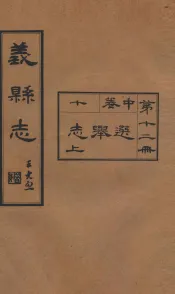 第十二冊
中卷十
選舉志上
義縣志